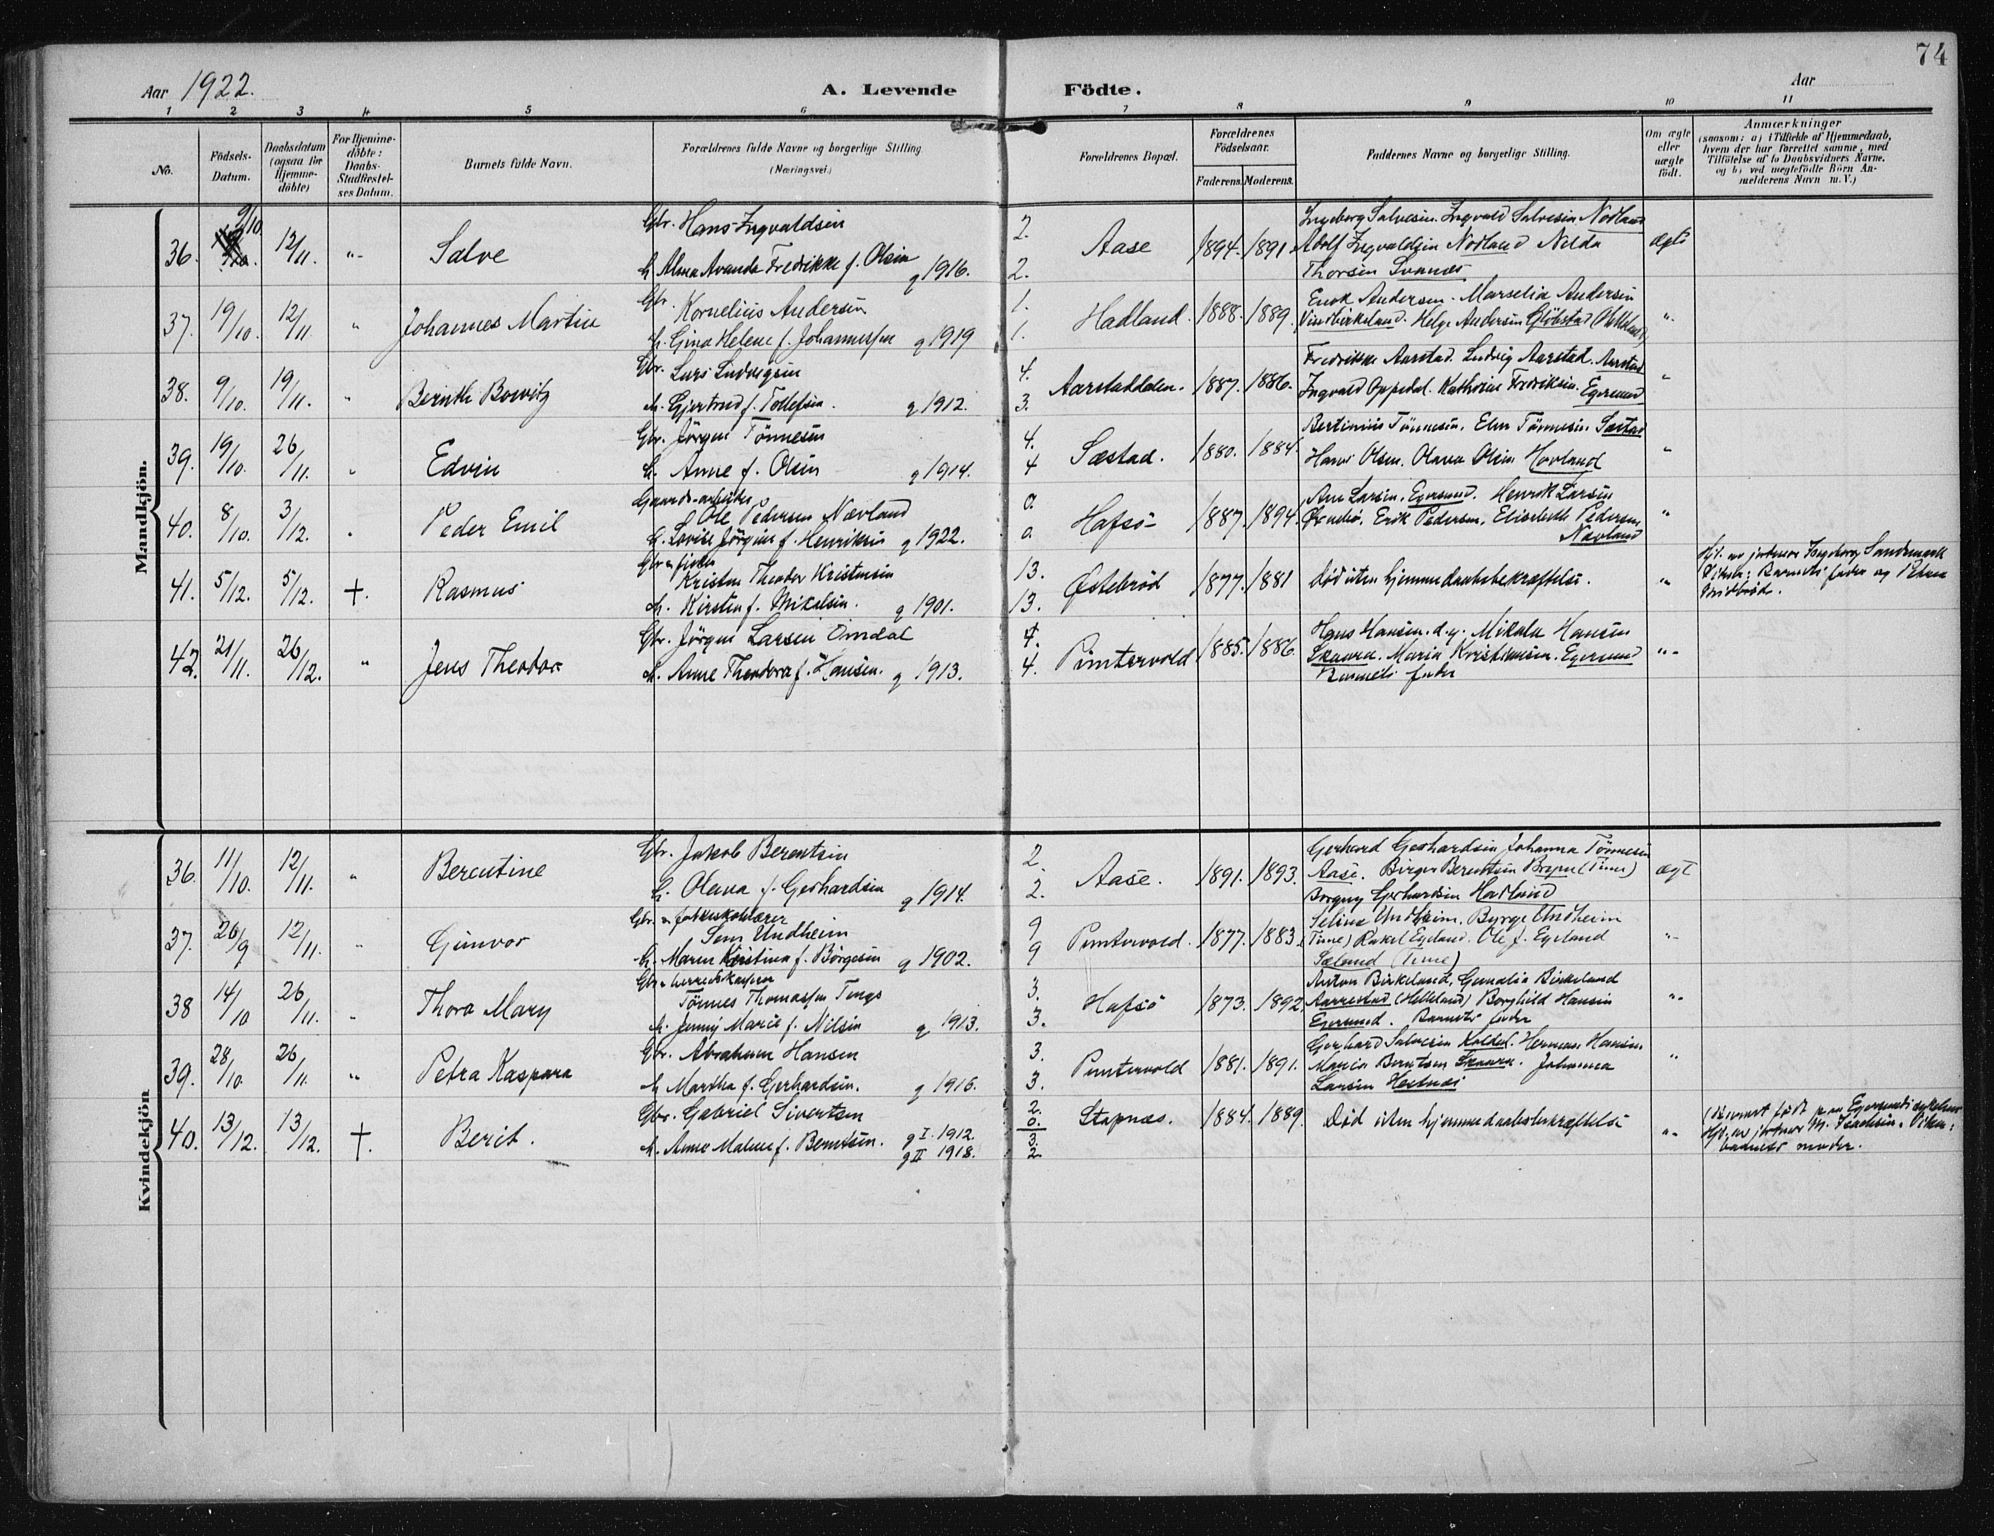 74
Aar 1922.
A. Levende Födte.
Aar
1 2 3 4 5 6 7 8 9 10 11
No.
Födsels-Datum.
Daabsdatum (ogsaa for Hjemme-döbte)
For Hjemme-döbte: Daabs-Stadfæstel-ses Datum.
Barnets fulde Navn.
Forældrenes fulde Navne og borgerlige Stilling (Næringsvei.)
Forældrenes Bopæl.
Forældrenes Födselsaar.
Faderens. Moderens.
Faddernes Navne og borgerlige Stilling.
Om ægte eller uægte födt.
Anmærkninger
(saasom: a) i Tilfælde af Hjemmedaab, hvem der har forrettet samme, med Tilföielse af to Daabsvidners Navne, og b) ved uægtefödte Börn An-melderens Navn m. V.)
Mandkjön.
36. 9/10. 12/11. "- Salve
Gbr. Hans Ingvaldsen
h. Alma Amanda Fredrikke f. Olsen g 1916.
2. 2. Aase 1894. 1891
Ingeborg Salvesen. Ingvald Salvesen Nodland
Adolf Ingvaldsen Nodland Nelda
Thorsen Svanes
ægte
37. 19/10. 12/11. " Johannes Martin
Gbr. Kornelius Andersen
h. Gina Helene f. Johannessen g 1919
1. 1. Hadland. 1888. 1889.
Enok Andersen. Marselia Andersen
Vindbirkeland. Helge Andersen
".
38. 9/10. 19/11. " Bernth Bowitz
Gbr. Lars Ludvigsen
h. Gjertrud f. Tollefsen. g 1912.
4. 3. Aarstaddalen. 1887. 1886.
Fredrikke Aarstad. Ludvig Aarstad. Aarstad
Ingvald Oppedal. Kathrine Fredriksen. Egersund
"
39. 19/10. 26/11. " Edvin
Gbr. Jörgen Tönnesen
h. Anne f. Olsen g 1914.
4. 4 Sæstad. 1880. 1884.
Bertinius Tönnesen. Elen Tönnesen. Sæstad
Hans Olsen. Olava Olsen Hovland
"
40. 8/10. 3/12. " Peder Emil
Gaards-arbeider
Ole Pedersen Nævland
h. Lovise Jörgine f. Henriksen g 1922.
0 0. Hafsö- 1887. 1894.
Ane Larsen. Egersund. Henrik Larsen
Erik Pedersen, Elisabeth Pedersen
Nævland
"
41. 5/12. 5/12. +. Rasmus
Gbr. og fisker
Kristen Theodor Kristensen
h. Kirsten f. Mikalsen. g 1901.
13. 13. Østebröd 1877. 1881
död uten hjemmedaabsbekræftelse.
"
Hjd. av jordmor Ingeborg Sandsmark
Vidner: Barnets fader og Petra
42. 21/11. 26/12. " Jens Theodor
Gbr. Jörgen Larsen Omdal
h. Anne Theodora f. Hansen. g 1913.
4. 4. Puntervold 1885. 1886.
Hans Hansen. d.y. Mikala Hansen
Skaara. Maria Kristiansen. Egersund
Barnets fader
"-
Kvindekjön
36. 11/10. 12/11. " Berentine
Gbr. Jakob Berentsen
h. Olava f. Gerhardsen g 1914.
2. 2. Aase. 1891. 1893.
Gerhard Gerhardsen Johanna Tönnesen
Aase. Birger Berentsen Bryne (Time)
Borgny Gerhardsen Hadland
ægt
37. 26/9 12/11. " Gunvor
Gbr. og folkeskolelærer
Sem Undheim
h. Maren Kristina f. Börgesen g 1902.
9 9 Puntervold. 1877. 1883.
Selina Undheim. Byrge Undheim
(Time) Rakel Egeland. Ole J. Egeland
Sæland (Time)
"-
38 14/10 26/11. " Thora Mary
Gbr. og herredskasserer
Tönnes Thomassen Tengs
h. Jenny Marie f. Nilsen g 1913.
3. 3. Hafsö 1873. 1892.
Anton Birkeland, Gemalia Birkeland
Aarrestad (Helleland) Borghild Hansen
Egersund. Barnets fader
"-
39. 28/10. 26/11. " Petra Kaspara
Gbr. Abraham Hansen
h Martha f. Gerhardsen. g 1916.
3. 3. Puntervold 1881. 1891.
Gerhard Salvesen Koldal. Herman Hansen
Maria Berntsen Skaara. Johanna
Larsen Hestnes
"
40. 13/12. 13/12. +. Berit.
Gbr. Gabriel Sivertsen
h. Anne Malene f. Berntsen. g I. 1912.
g II 1918.
2. 0. 3. 2. Stapnæs. 1884. 1889.
Död uten hjemmedaabsbekræftelse
"-
Barnet födt paa Egersunds sykehus
Hjd. av jordmor M. Isachsen. Vidne:
barnets moder.